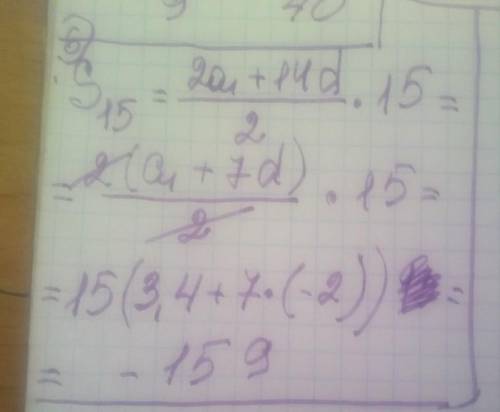 9 40
S₁₅ = (2a₁ + 14d)/2 · 15 =
= 2(a₁ + 7d)/2 · 15 =
= 15(3,4 + 7 · (-2)) =
= - 159